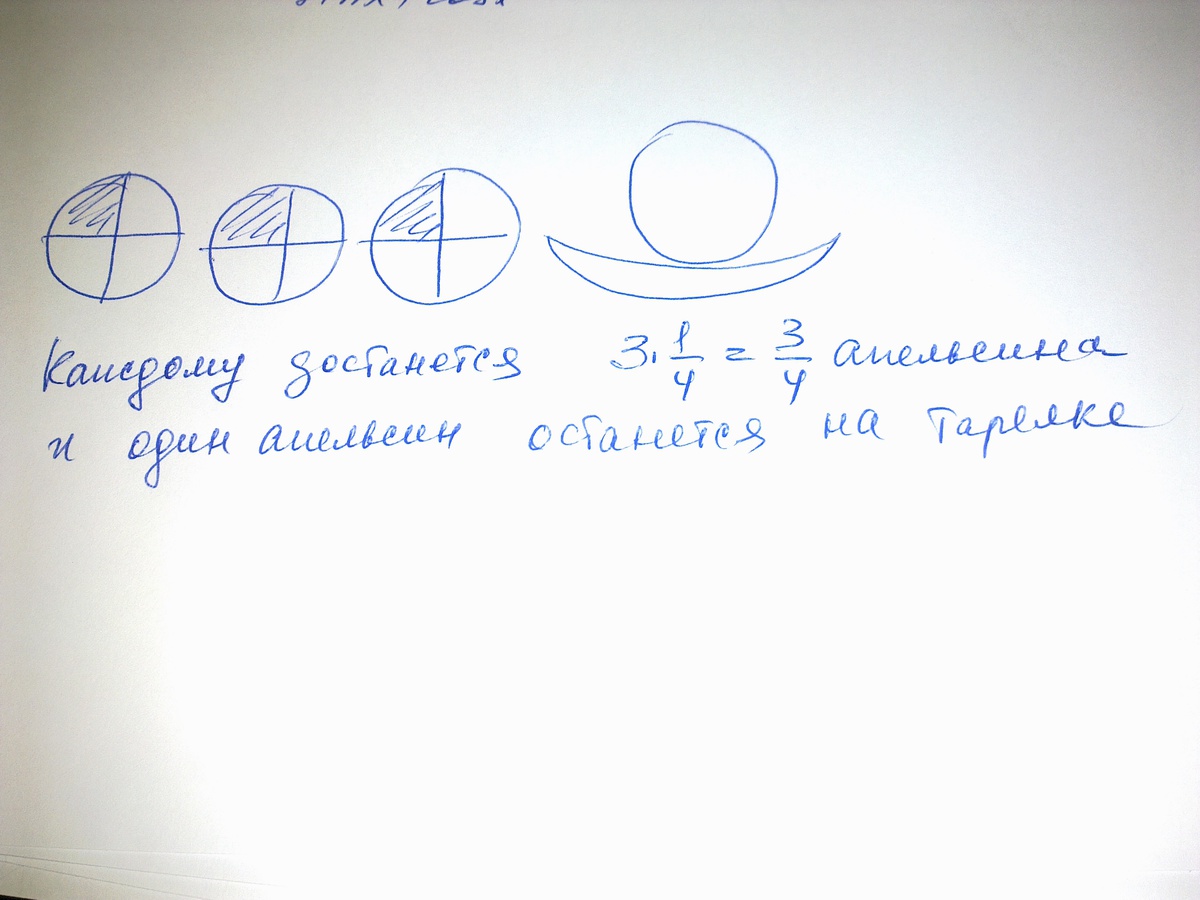 Каждому достанется 3·1/4 = 3/4 апельсина
и один апельсин останется на тарелке